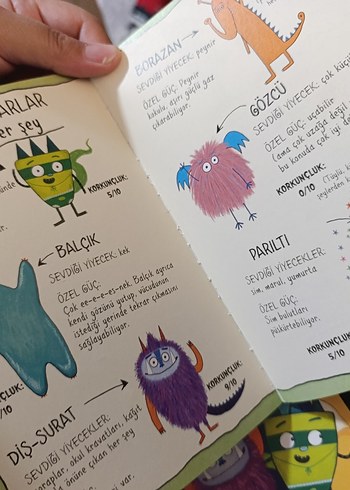 ARLAR
er şey
KORKUNÇLUK:
5/10
BALÇIK
SEVDİĞİ YİYECEK: kek
ÖZEL GÜÇ:
Çok ee-e-e-es-nek. Balçık ayrıca
kendi gözünü yutup, vücudunun
istediği yerinde tekrar çıkmasını
sağlayabiliyor.
ÇLUK:
/10
DİŞ-SURAT
SEVDİĞİ YİYECEKLER:
raplar, okul kravatları, kağıt
a da önüne çıkan her şey
KORKUNÇLUK:
9/10
var.
BORAZAN
SEVDİĞİ YİYECEK: peynir
ÖZEL GÜÇ: Peynir
kokulu, aşırı güçlü gaz
çıkarabiliyor.
GÖZCÜ
SEVDİĞİ YİYECEK: çok küçü
ÖZEL GÜÇ: uçabilir
(ama çok uzağa değil
bu kanuda çok iyi de
KORKUNÇLUK:
0/10
(Tüylü, k
şeylerden
PARILTI
SEVDİĞİ YİYECEKLER:
sim, marul, yumurta
ÖZEL GÜÇ:
Sim bulutları
püskürtebiliyor.
KORKUNÇLUK:
5/10